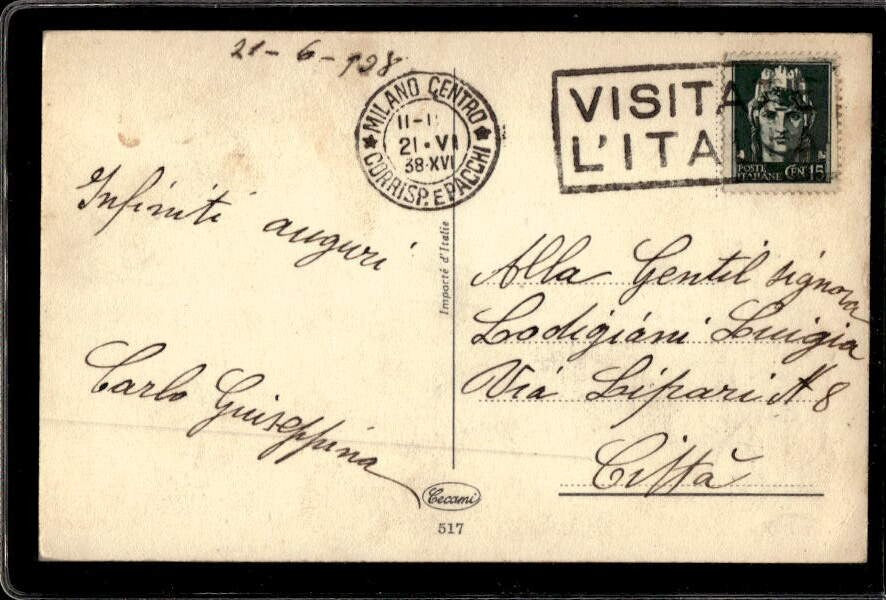 21-6-928
MILANO CENTRO
II-1
21·VI
38·XVI
CORRISP. E PACCHI
VISITA
L'ITA
POSTE
ITALIANE CEN 15
Infiniti auguri
Carlo Guiseppina
Importé d'Italie
Alla Gentil signora
Lodigiani Luigia
Via Lipari N 8
Città
Cecami
517